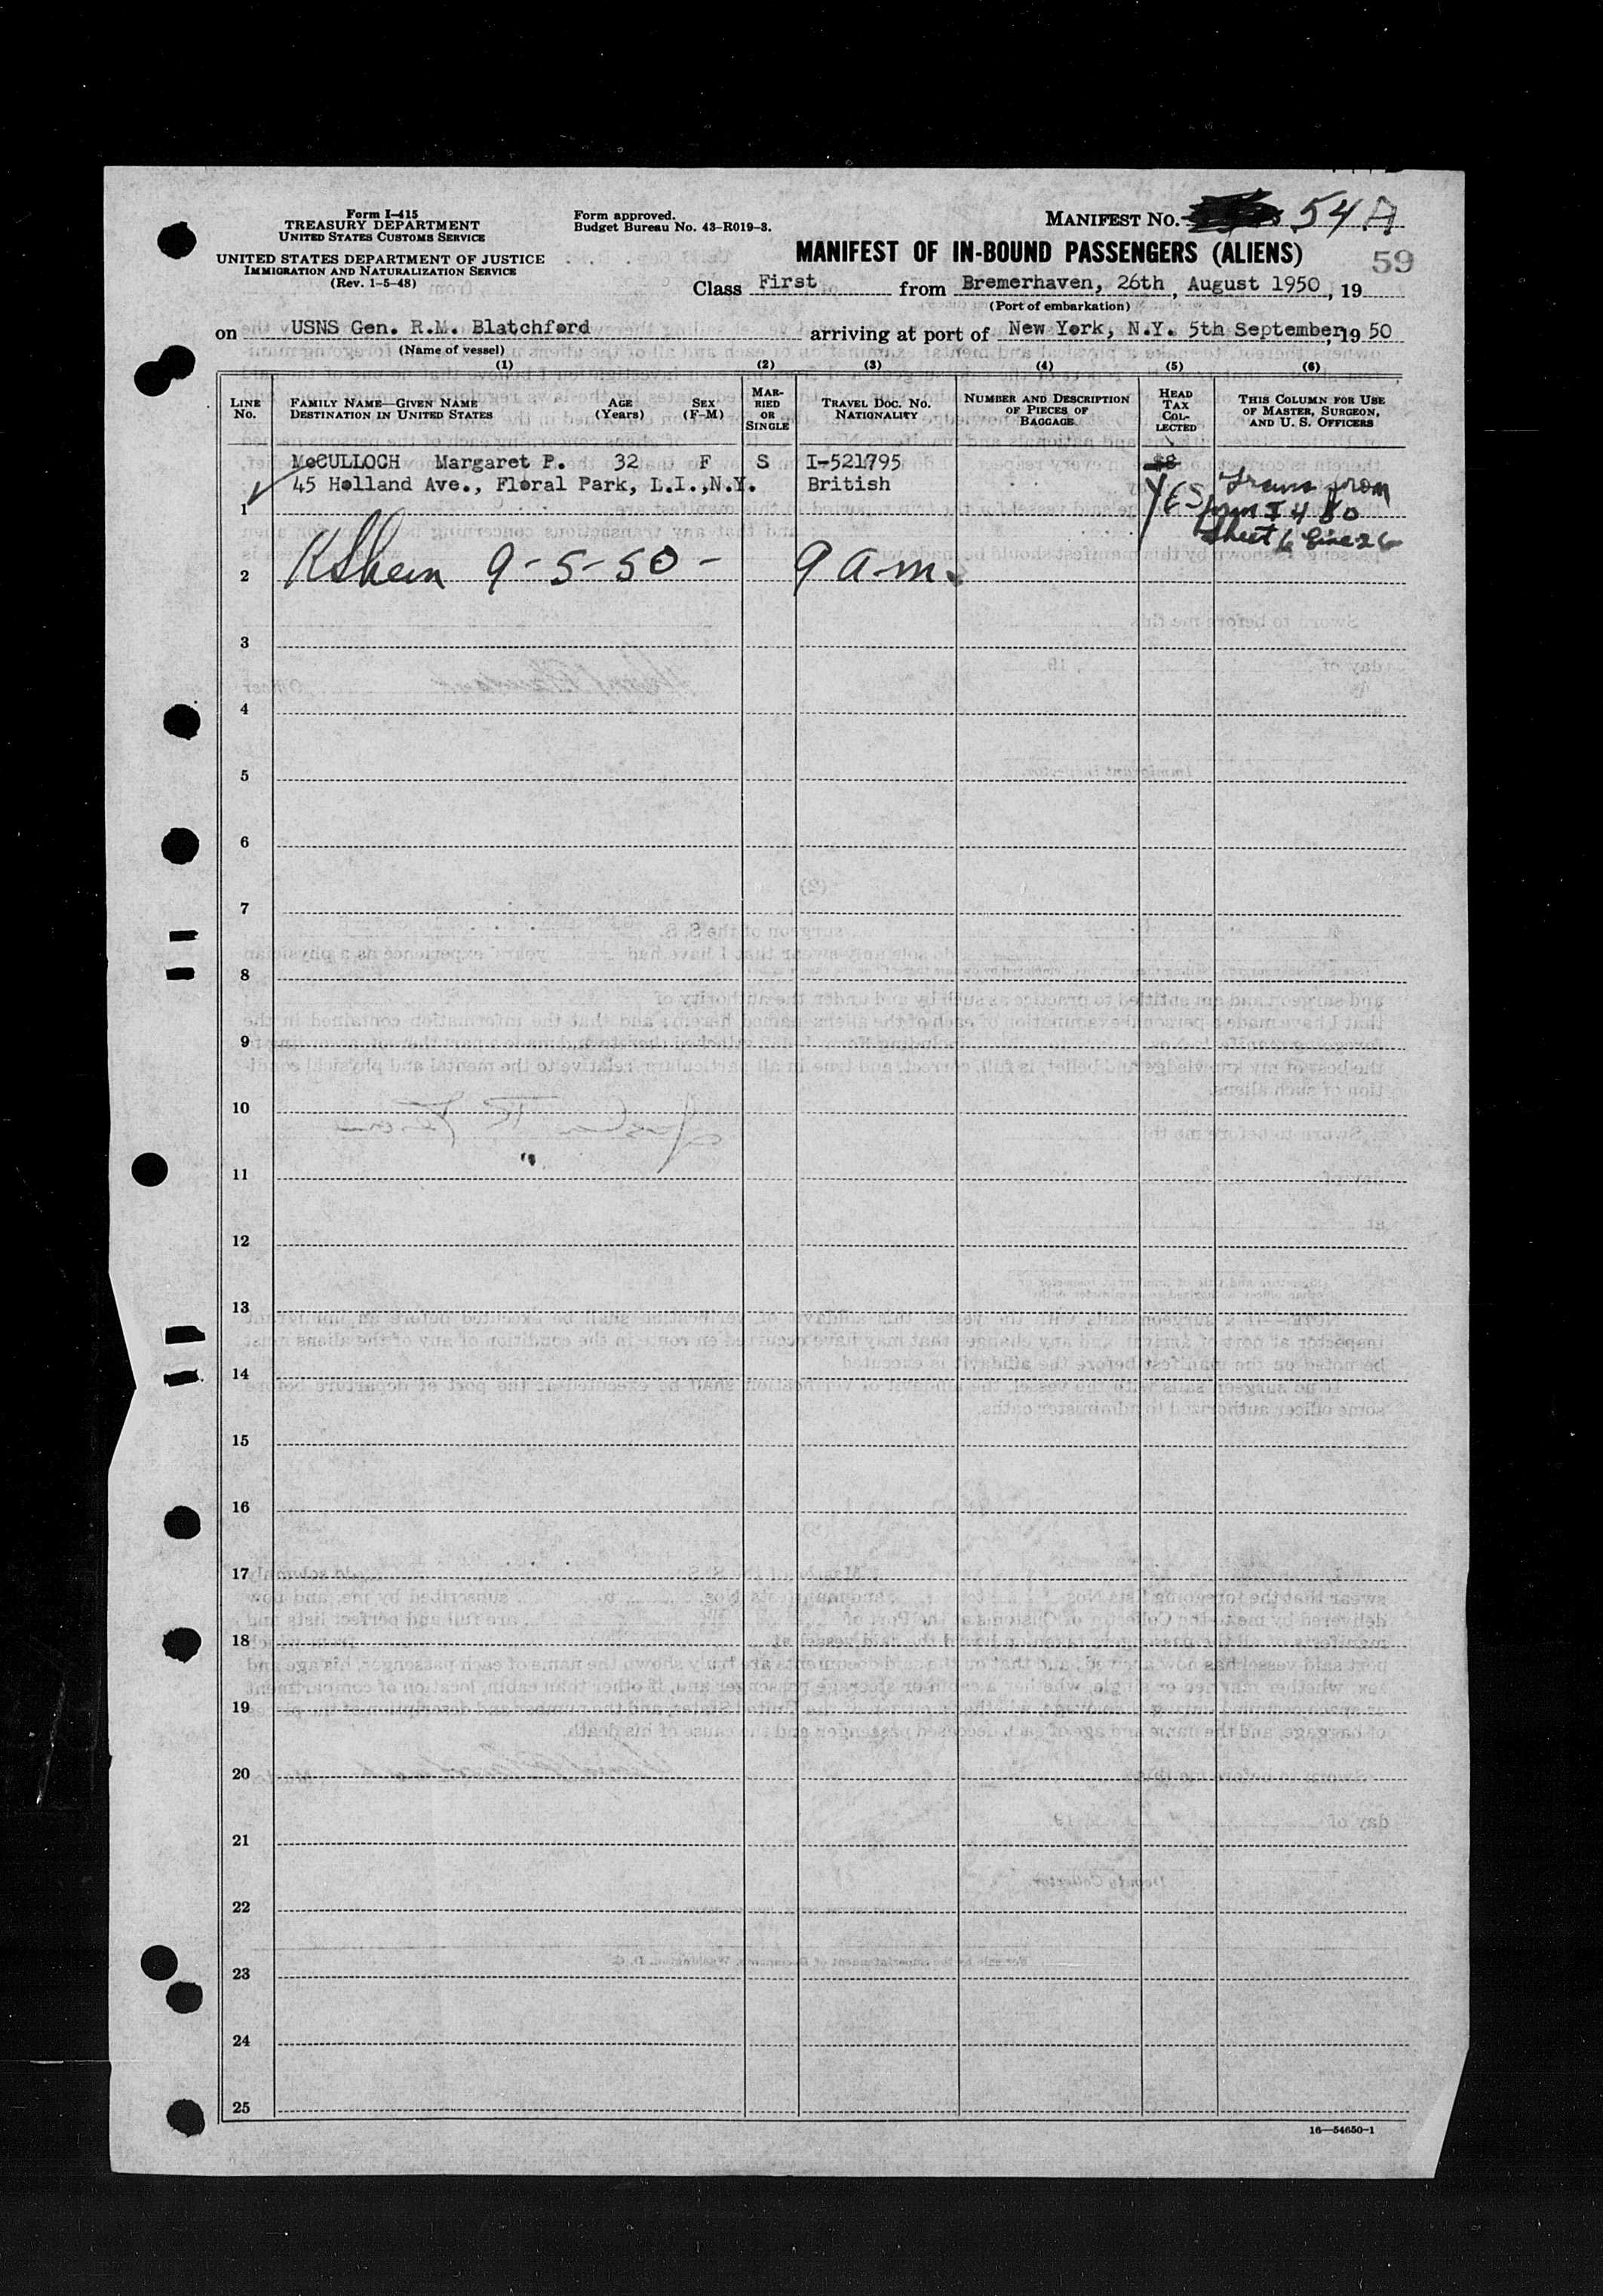 Form I-415
TREASURY DEPARTMENT
UNITED STATES CUSTOMS SERVICE
UNITED STATES DEPARTMENT OF JUSTICE
IMMIGRATION AND NATURALIZATION SERVICE
(Rev. 1-5-48)
Form approved.
Budget Bureau No. 43-R019-3.
MANIFEST NO. 54 A
MANIFEST OF IN-BOUND PASSENGERS (ALIENS)
59
Class First from Bremerhaven, 26th, August 1950, 19
(Port of embarkation)
on USNS Gen. R.M. Blatchford arriving at port of New York, N.Y. 5th September, 19 50
(Name of vessel)
(1) (2) (3) (4) (5) (6)
LINE NO.
FAMILY NAME—GIVEN NAME
DESTINATION IN UNITED STATES
AGE
(Years)
SEX
(F-M)
MAR-
RIED
OR
SINGLE
TRAVEL DOC. NO.
NATIONALITY
NUMBER AND DESCRIPTION
OF PIECES OF
BAGGAGE
HEAD
TAX
COL-
LECTED
THIS COLUMN FOR USE
OF MASTER, SURGEON,
AND U. S. OFFICERS
McCULLOCH Margaret P. 32 F S I-521795 $8
45 Holland Ave., Floral Park, L.I.,N.Y. British
YES
Trans from
form I 480
Sheet 6 Line 26
1
9-5-50- 9 am.
2
3
4
5
6
7
8
9
10
11
12
13
14
15
16
17
18
19
20
21
22
23
24
25
16—54650-1